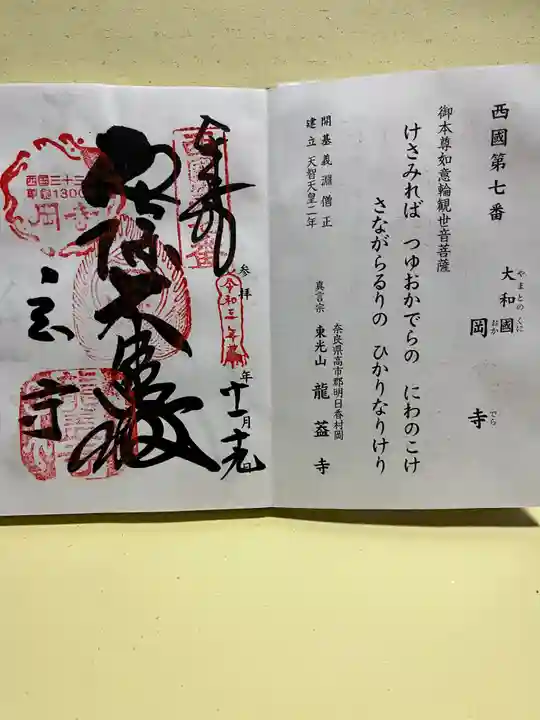 西國第七番
大和國　岡寺
やまとのくに　おか　でら
御本尊如意輪観世音菩薩
けさみれば　つゆおかでらの　にわのこけ
さながらるりの　ひかりなりけり
開基　義淵僧正
建立　天智天皇二年
奈良県高市郡明日香村岡
真言宗　東光山　龍蓋寺
奉拝
参拝
令和三年
年
十一月
西国三十三
草創1300年
岡寺
寺